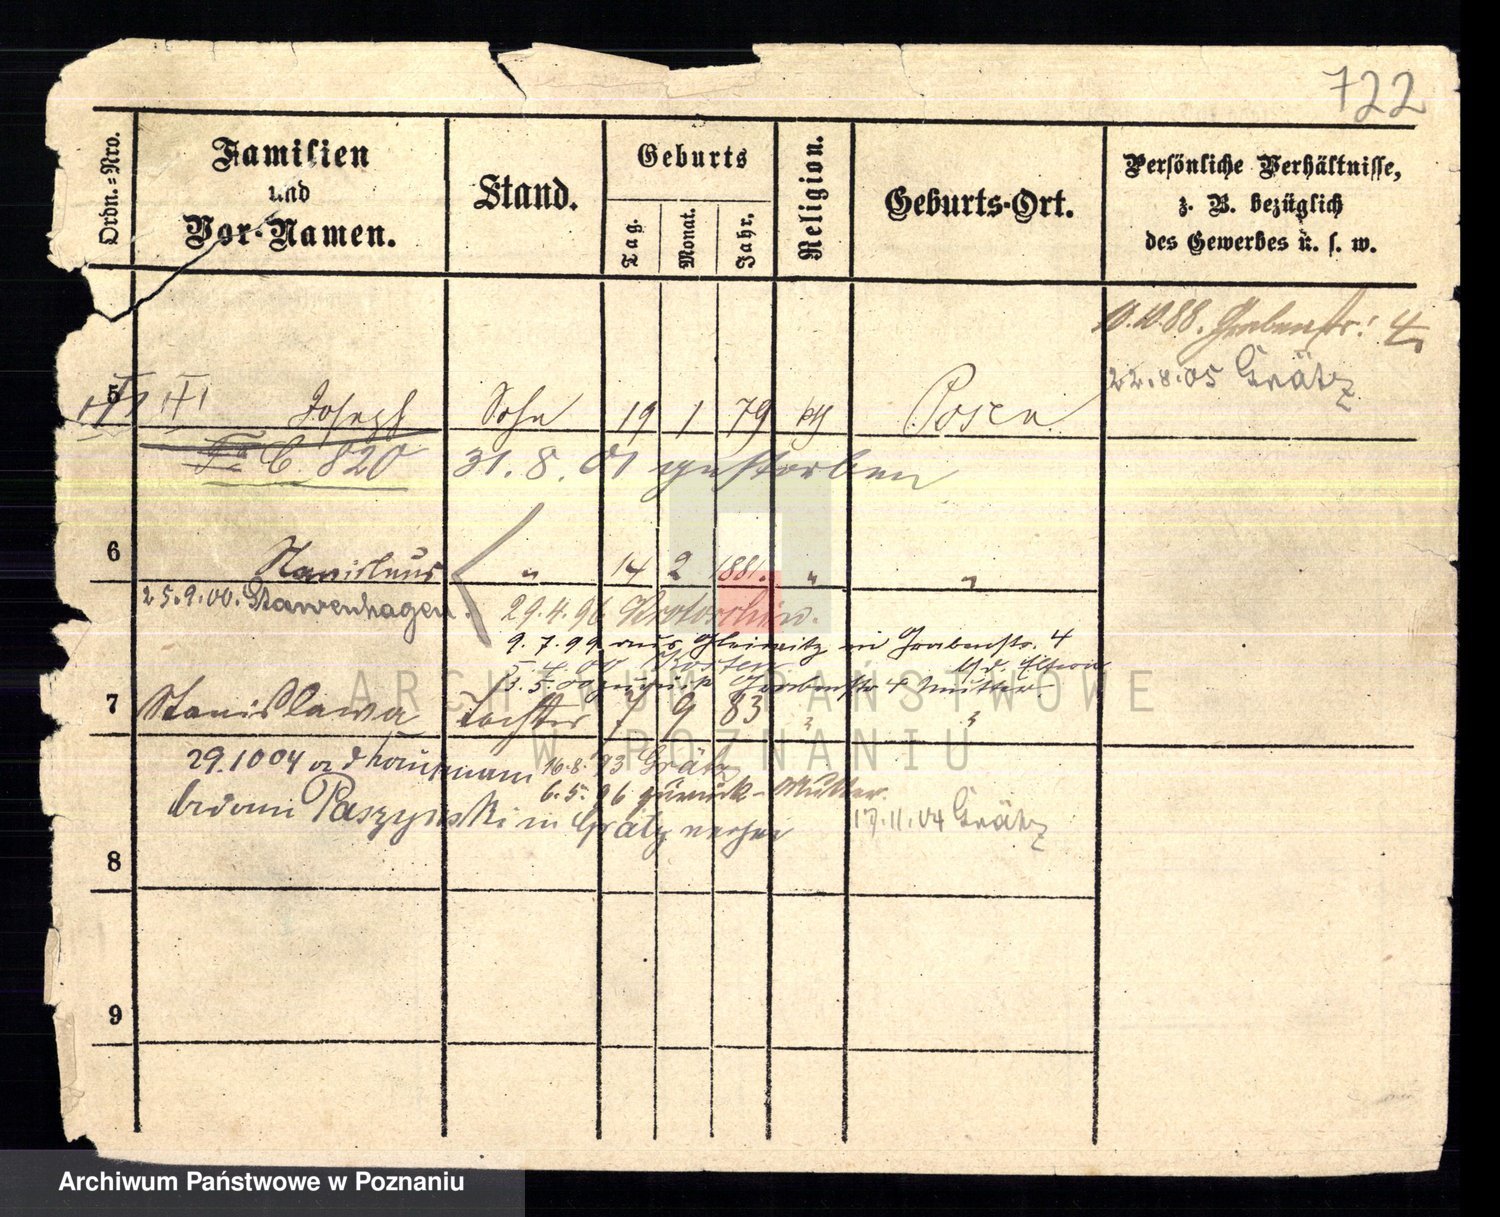 722
Ordn.=Nro.
Familien
und
Vor-Namen.
Stand.
Geburts
Tag.
Monat.
Jahr.
Religion.
Geburts-Ort.
Persönliche Verhältnisse,
z. B. bezüglich
des Gewerbes u. s. w.
10.10.88. Grabenstr: 4.
22.8.05 Grätz
5 Joseph Sohn 19 1 79 Posen
C. 820 31.8.01 gestorben
6 Stanislaus " 14 2 1881. " "
25.9.00. Stavenhagen.
29.4.96 Krotoschin.
9.7.99 aus Gleiwitz in Grabenstr. 4
Kosten b/d. Eltern
zurück Grabenstr 4 Mutter
7 Stanislawa Tochter 7 9 83 " "
29.10 04 a. d Kaufmann 16.8.93 Grätz
6.5.96 zurück - Mutter.
Paszynski in Grätz verhei
17.11.04 Grätz
8
9
ARCHIWUM PAŃSTWOWE
W POZNANIU
Archiwum Państwowe w Poznaniu